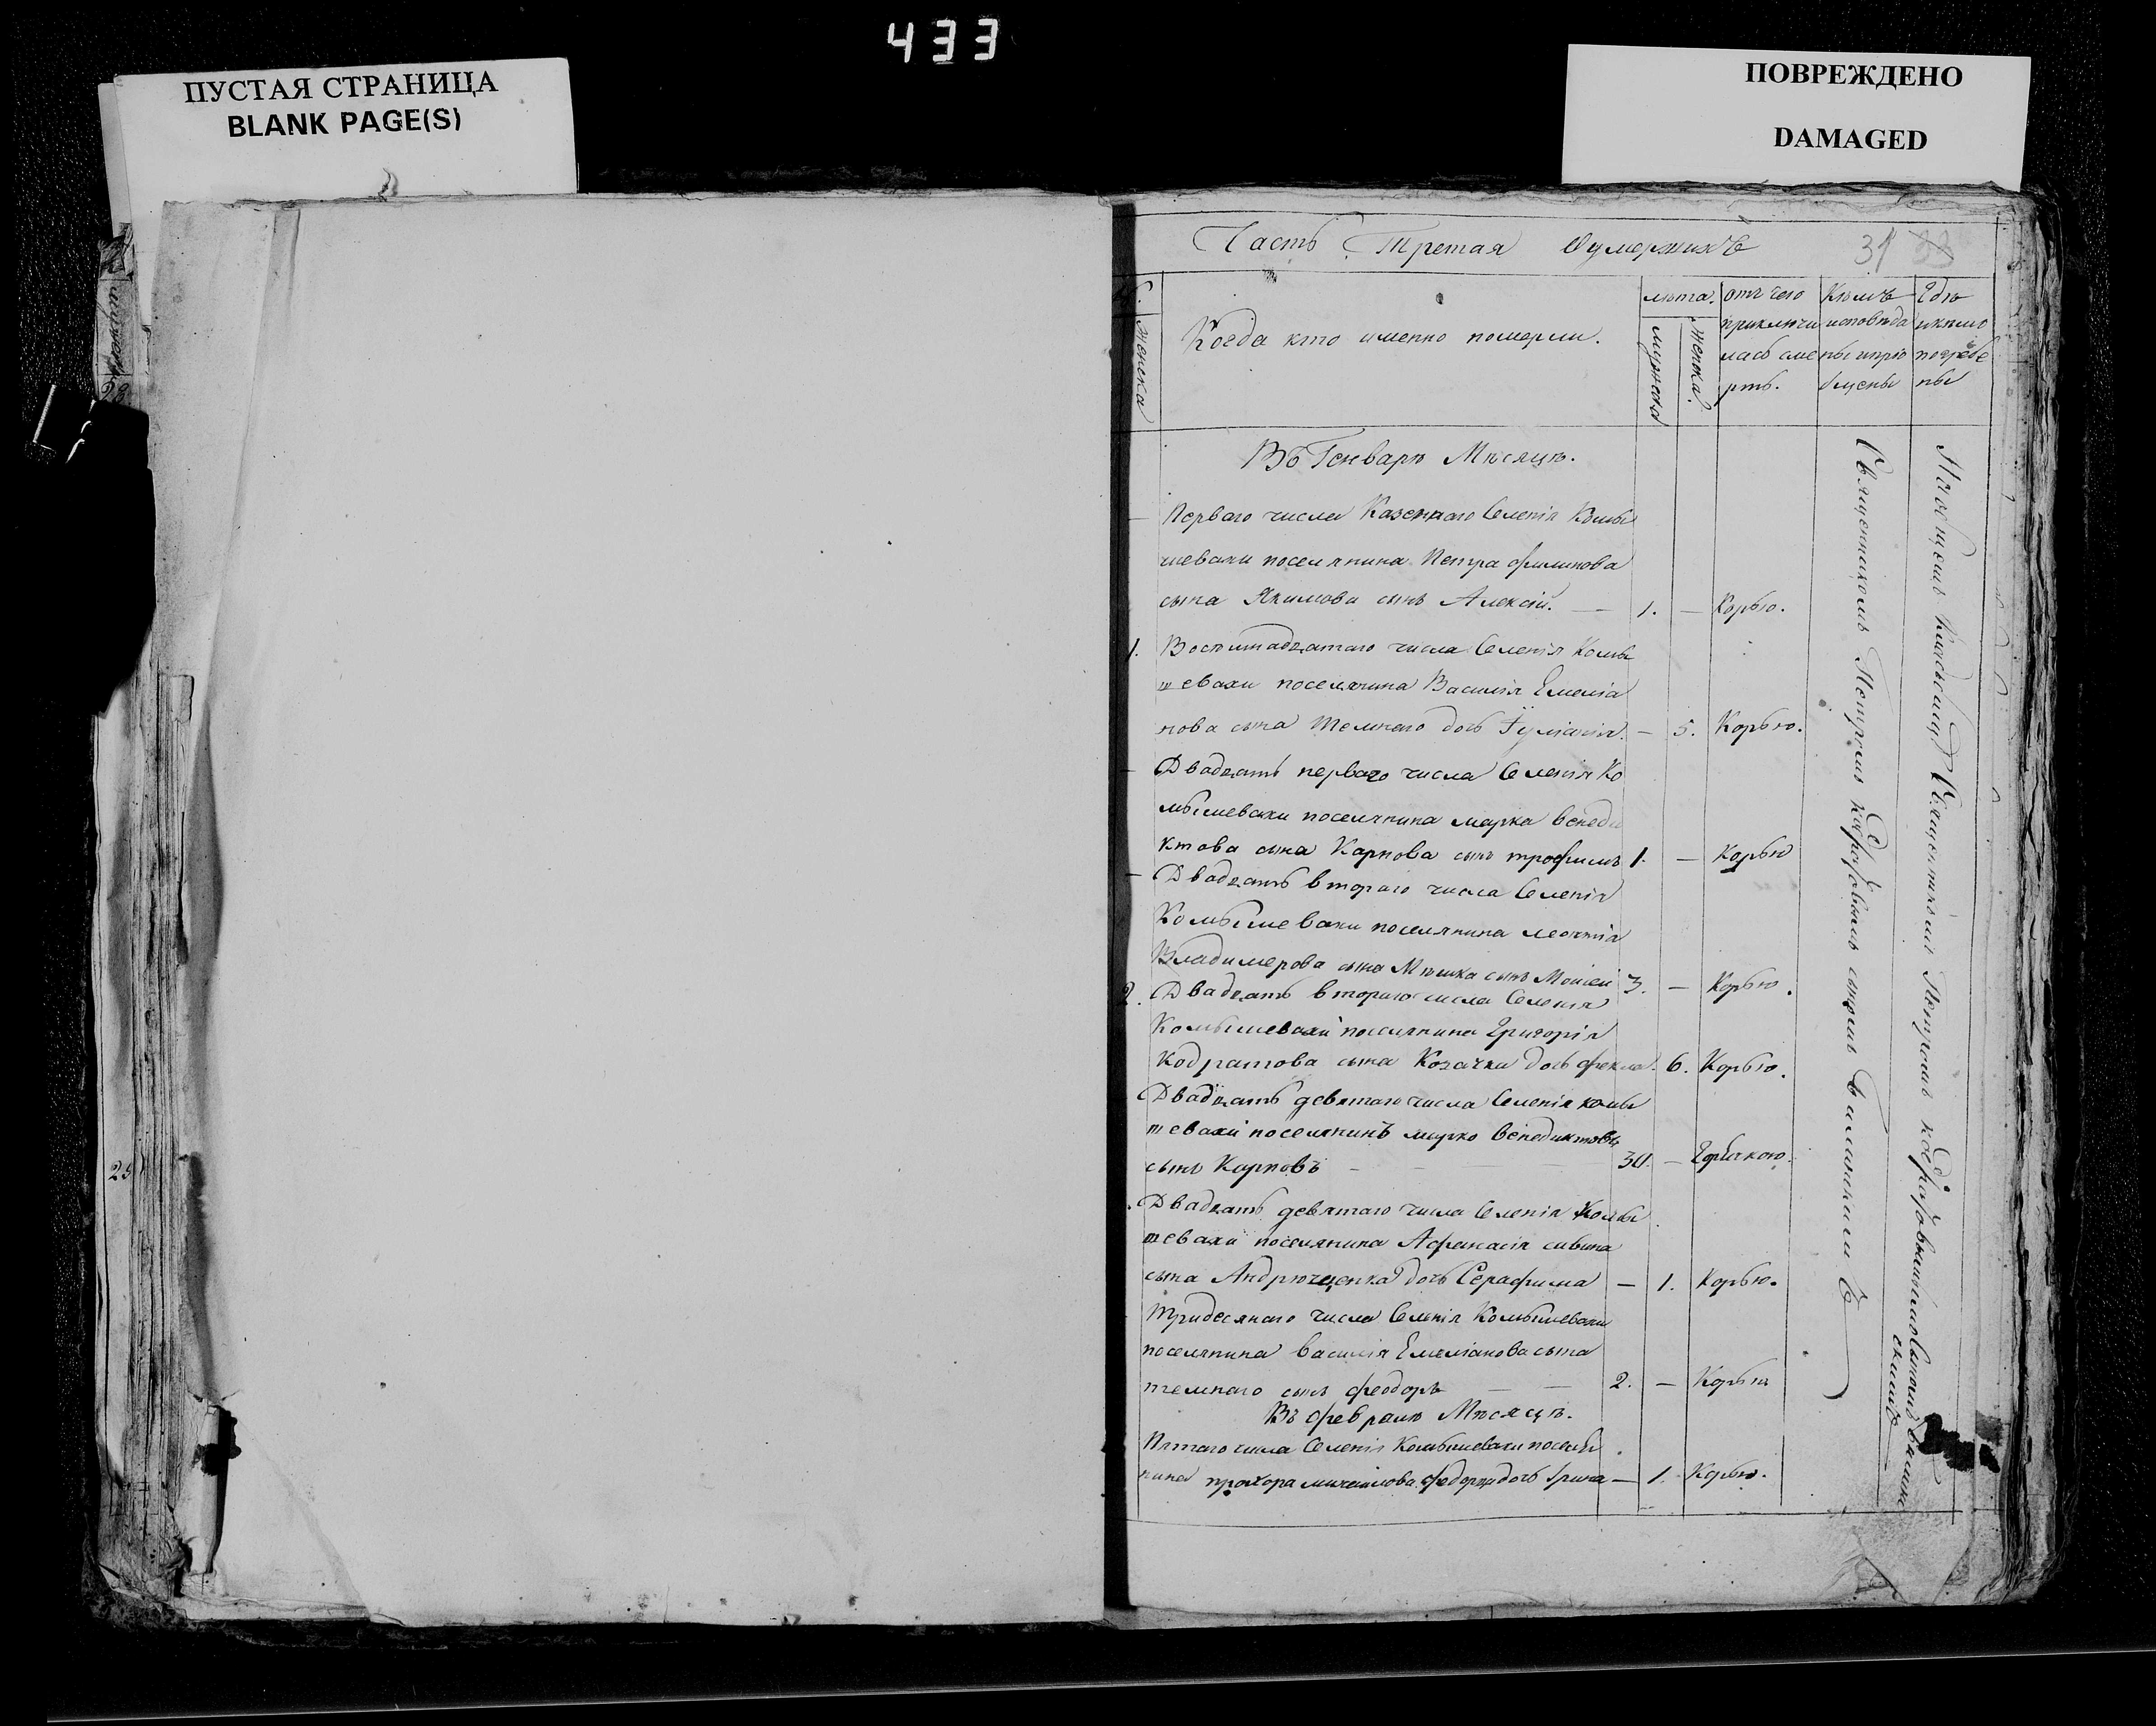 433
ПУСТАЯ СТРАНИЦА
BLANK PAGE(S)
ПОВРЕЖДЕНО
DAMAGED
Часть Третая Оумершихъ
31 33
женска
Когда кто именно померли.
лѣта.
мужеска
женска.
отъ чего
приключи
лась сме
рть.
Кѣмъ
исповѣда
ны и прiо
бщены
Гдѣ
и кѣмо
погребе
ны
Въ Генварѣ Мѣсяцѣ.
Перваго числа Казеннаго Селенiя Комы
шевахи поселянина Петра филипова
сына Якимова сынъ Алексiй. — 1. — Корью.
1. Восемнадцатаго числа Селенiя Комы
шевахи поселянина Василiя Емелiа
нова сына Темнаго дочь Iулианiя. — 5. Корью.
Двадцать перваго числа Селенiя Ко
мышевахи поселянина марка венеди
ктова сына Карпова сынъ трофимъ 1. — Корью
Двадцать втораго числа Селенiя
Комышевахи поселянина леонтiя
Владимерова сына Мѣшка сынъ Моисей 3. — Корью.
2. Двадцать втораго числа Селенiя
Комышевахи поселянина Григорiя
Кодратова сына Козачка дочь фекла. 6. Корью.
Двадцать девятаго числа Селенiя комы
шевахи поселянинъ марко венедиктовъ
сынъ Карповъ 30. — Горячкою.
Двадцать девятаго числа Селенiя Комы
шевахи поселянина Афанасiя савина
сына Андрющенка дочь Серафима — 1. Корью.
Тридесятаго числа Селенiя Комышевахи
поселянина василiя Емелiанова сына
темнаго сынъ феодоръ 2. — Корью
Въ февралѣ Мѣсяцѣ.
Пятаго числа Селенiя Комышевахи поселя
нина прохора михаилова дочь Iрина — 1. Корью.
Священникомъ Петромъ
Священникомъ Петромъ
25